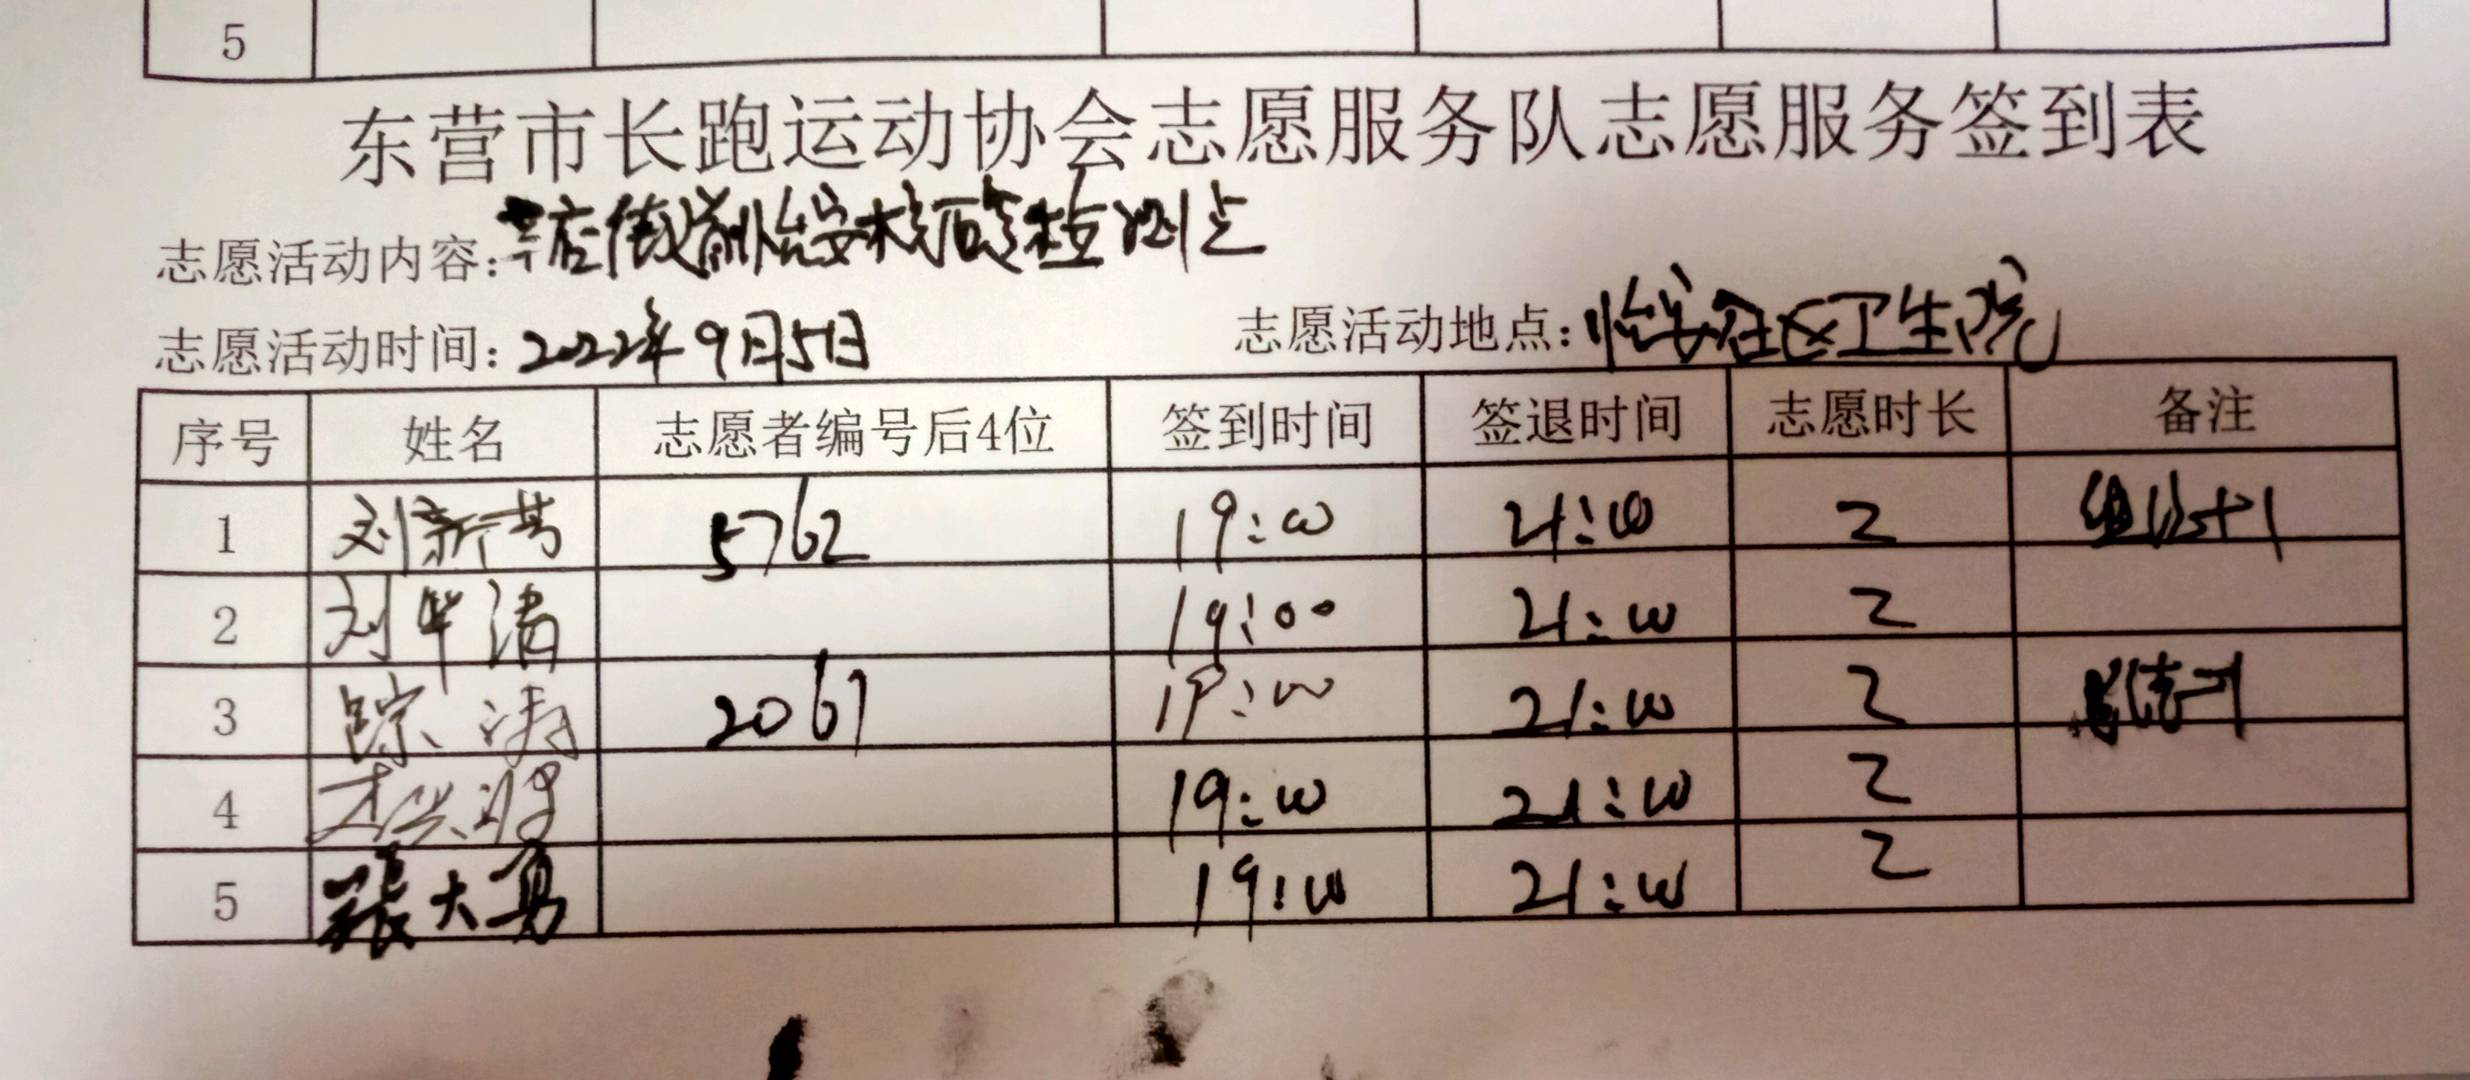 5
东营市长跑运动协会志愿服务队志愿服务签到表
志愿活动内容：辛店街道怡安核酸检测点
志愿活动时间：2022年9月5日 志愿活动地点：怡安社区卫生院
序号 姓名 志愿者编号后4位 签到时间 签退时间 志愿时长 备注
1 刘新芳 5762 19:00 21:00 2 组织+1
2 刘华清 19:00 21:00 2
3 踪涛 2061 19:00 21:00 2
4 19:00 21:00 2
5 张大勇 19:00 21:00 2